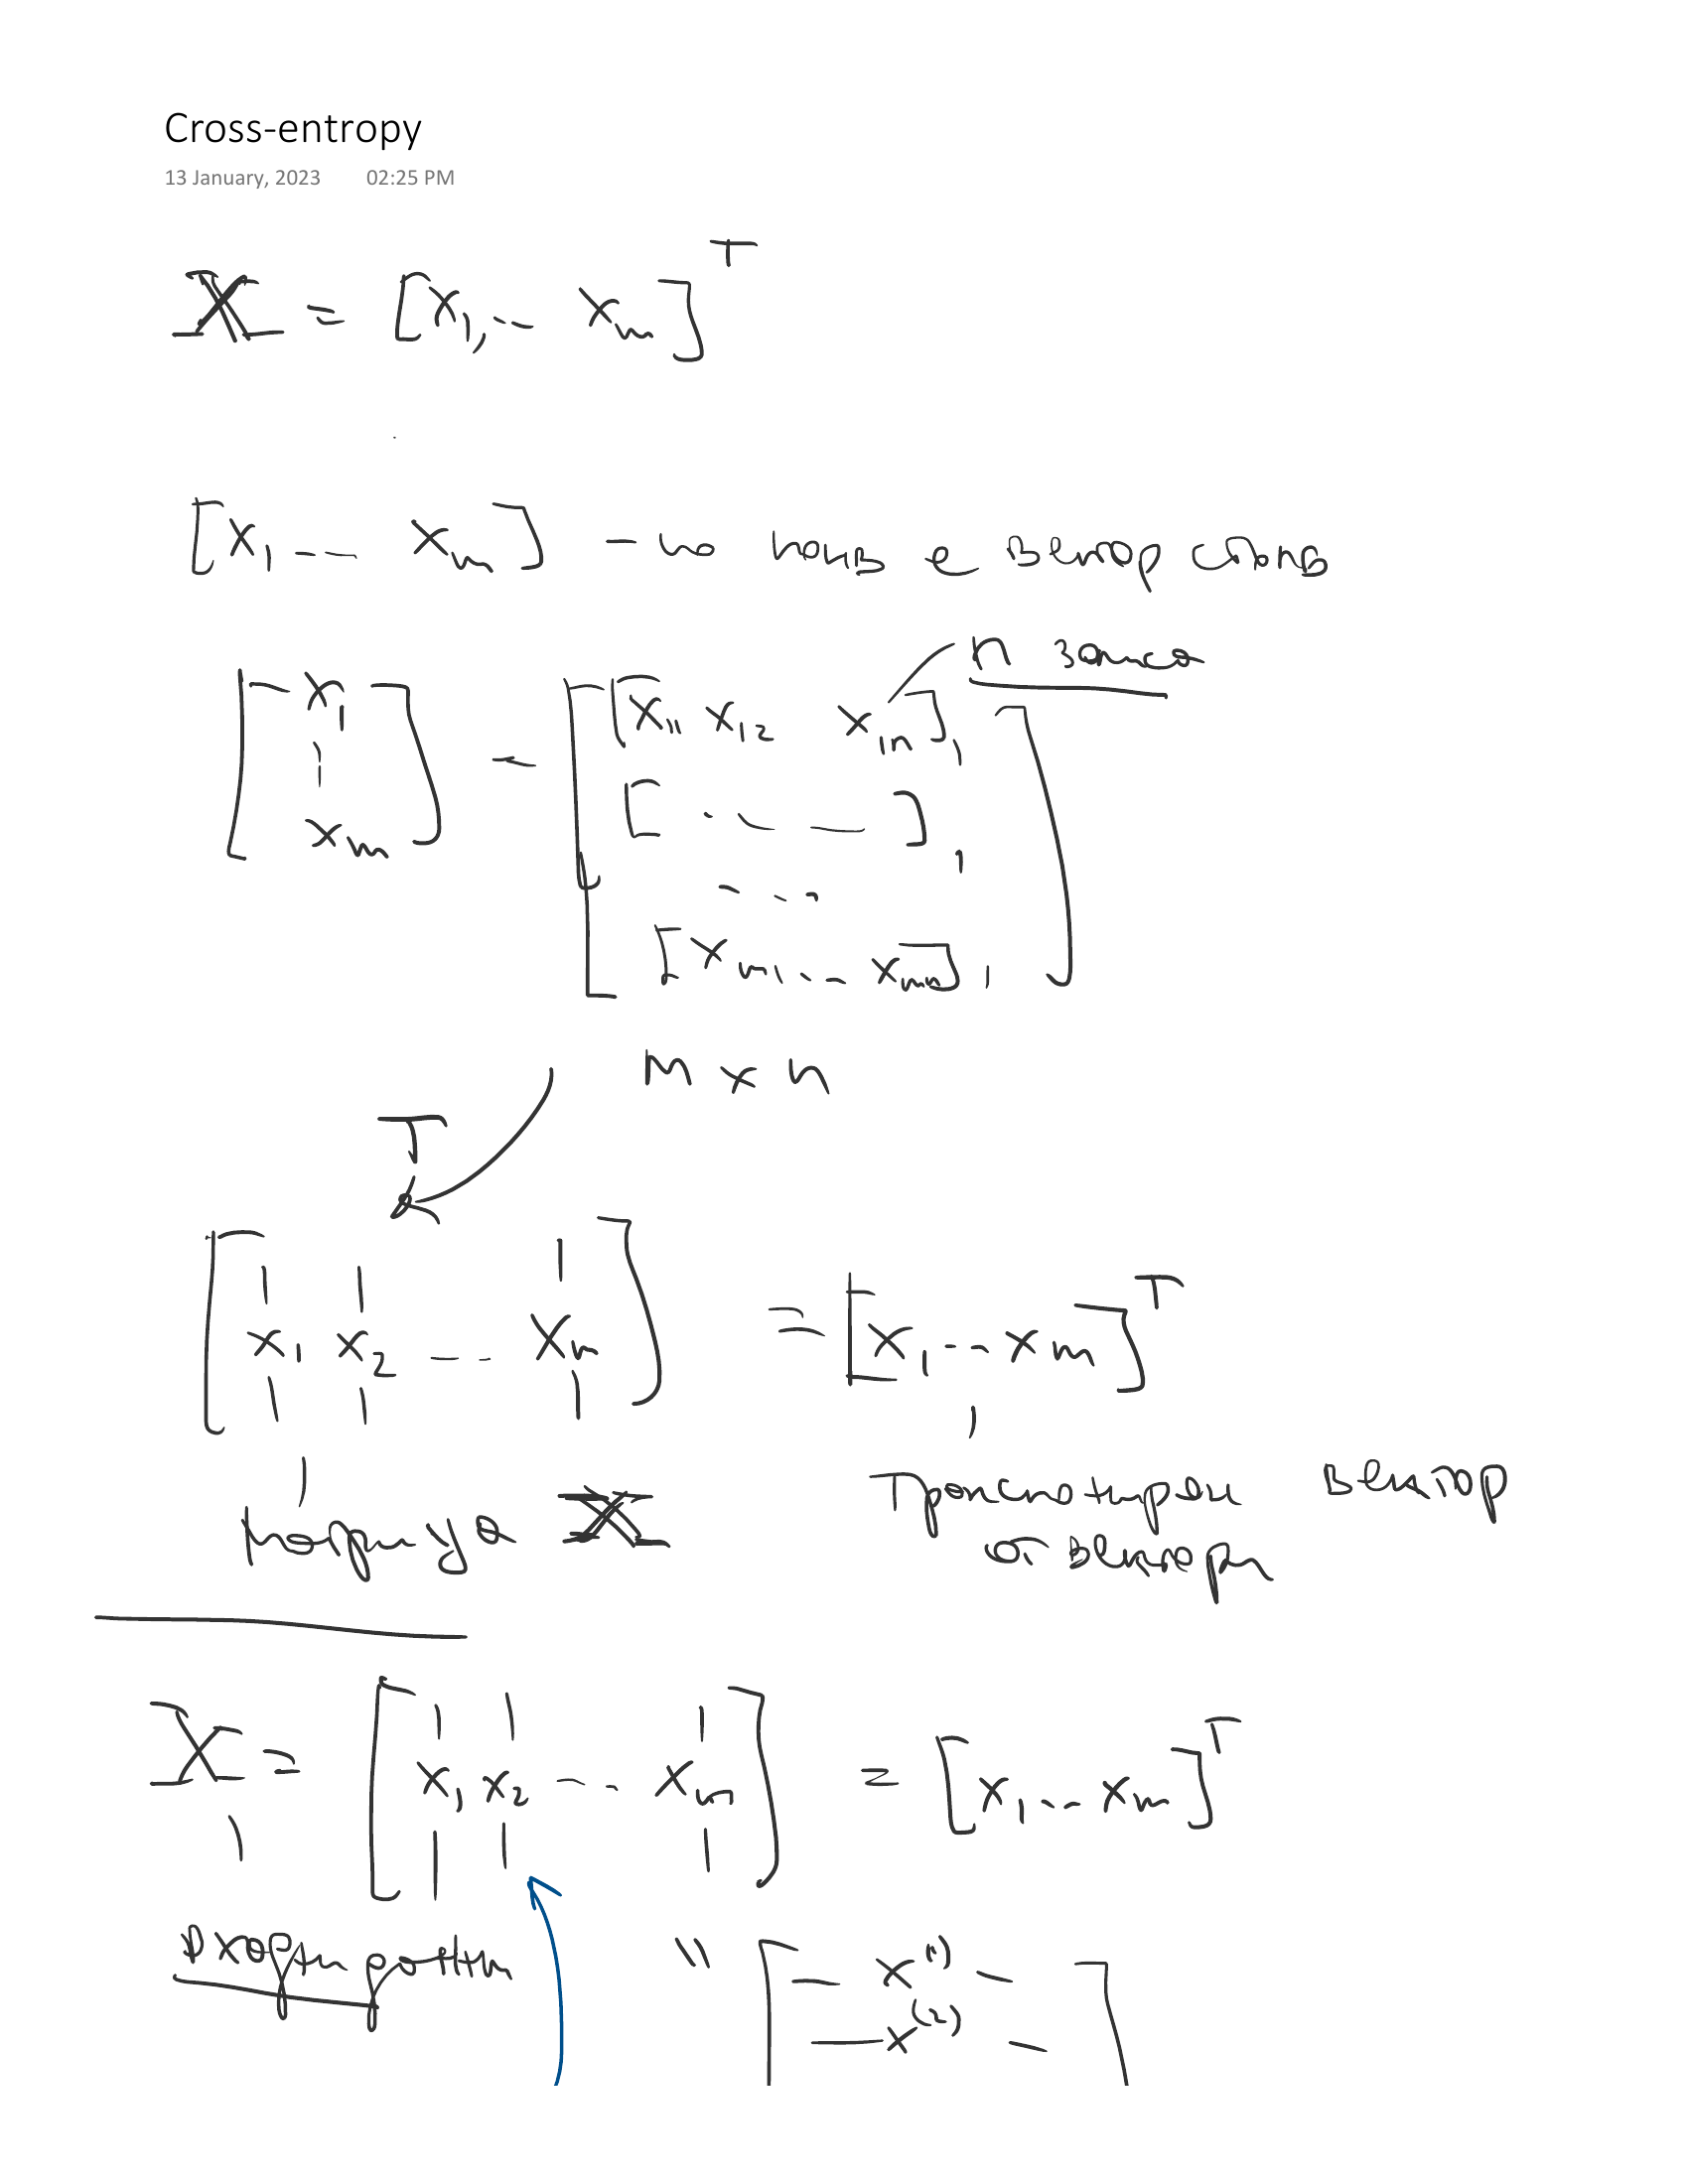 Cross-entropy
13 January, 2023 02:25 PM
X = [x₁, -- xₘ]ᵀ
[x₁ -- xₘ] - по е вектор стълб
n записа
[x₁
|
xₘ]
-
[[x₁₁ x₁₂ x₁ₙ],
[. - -],
- - -
[xₘ₁, -- xₘₙ], ]
m x n
T
[x₁ x₂ -- xₙ] = [x₁ -- xₘ]ᵀ
матрица X
Транспониран вектор
от вектори
X = [x₁ x₂ -- xₘ] = [x₁ -- xₘ]ᵀ
входни данни
" [- x⁽¹⁾ -
- x⁽²⁾ - ]